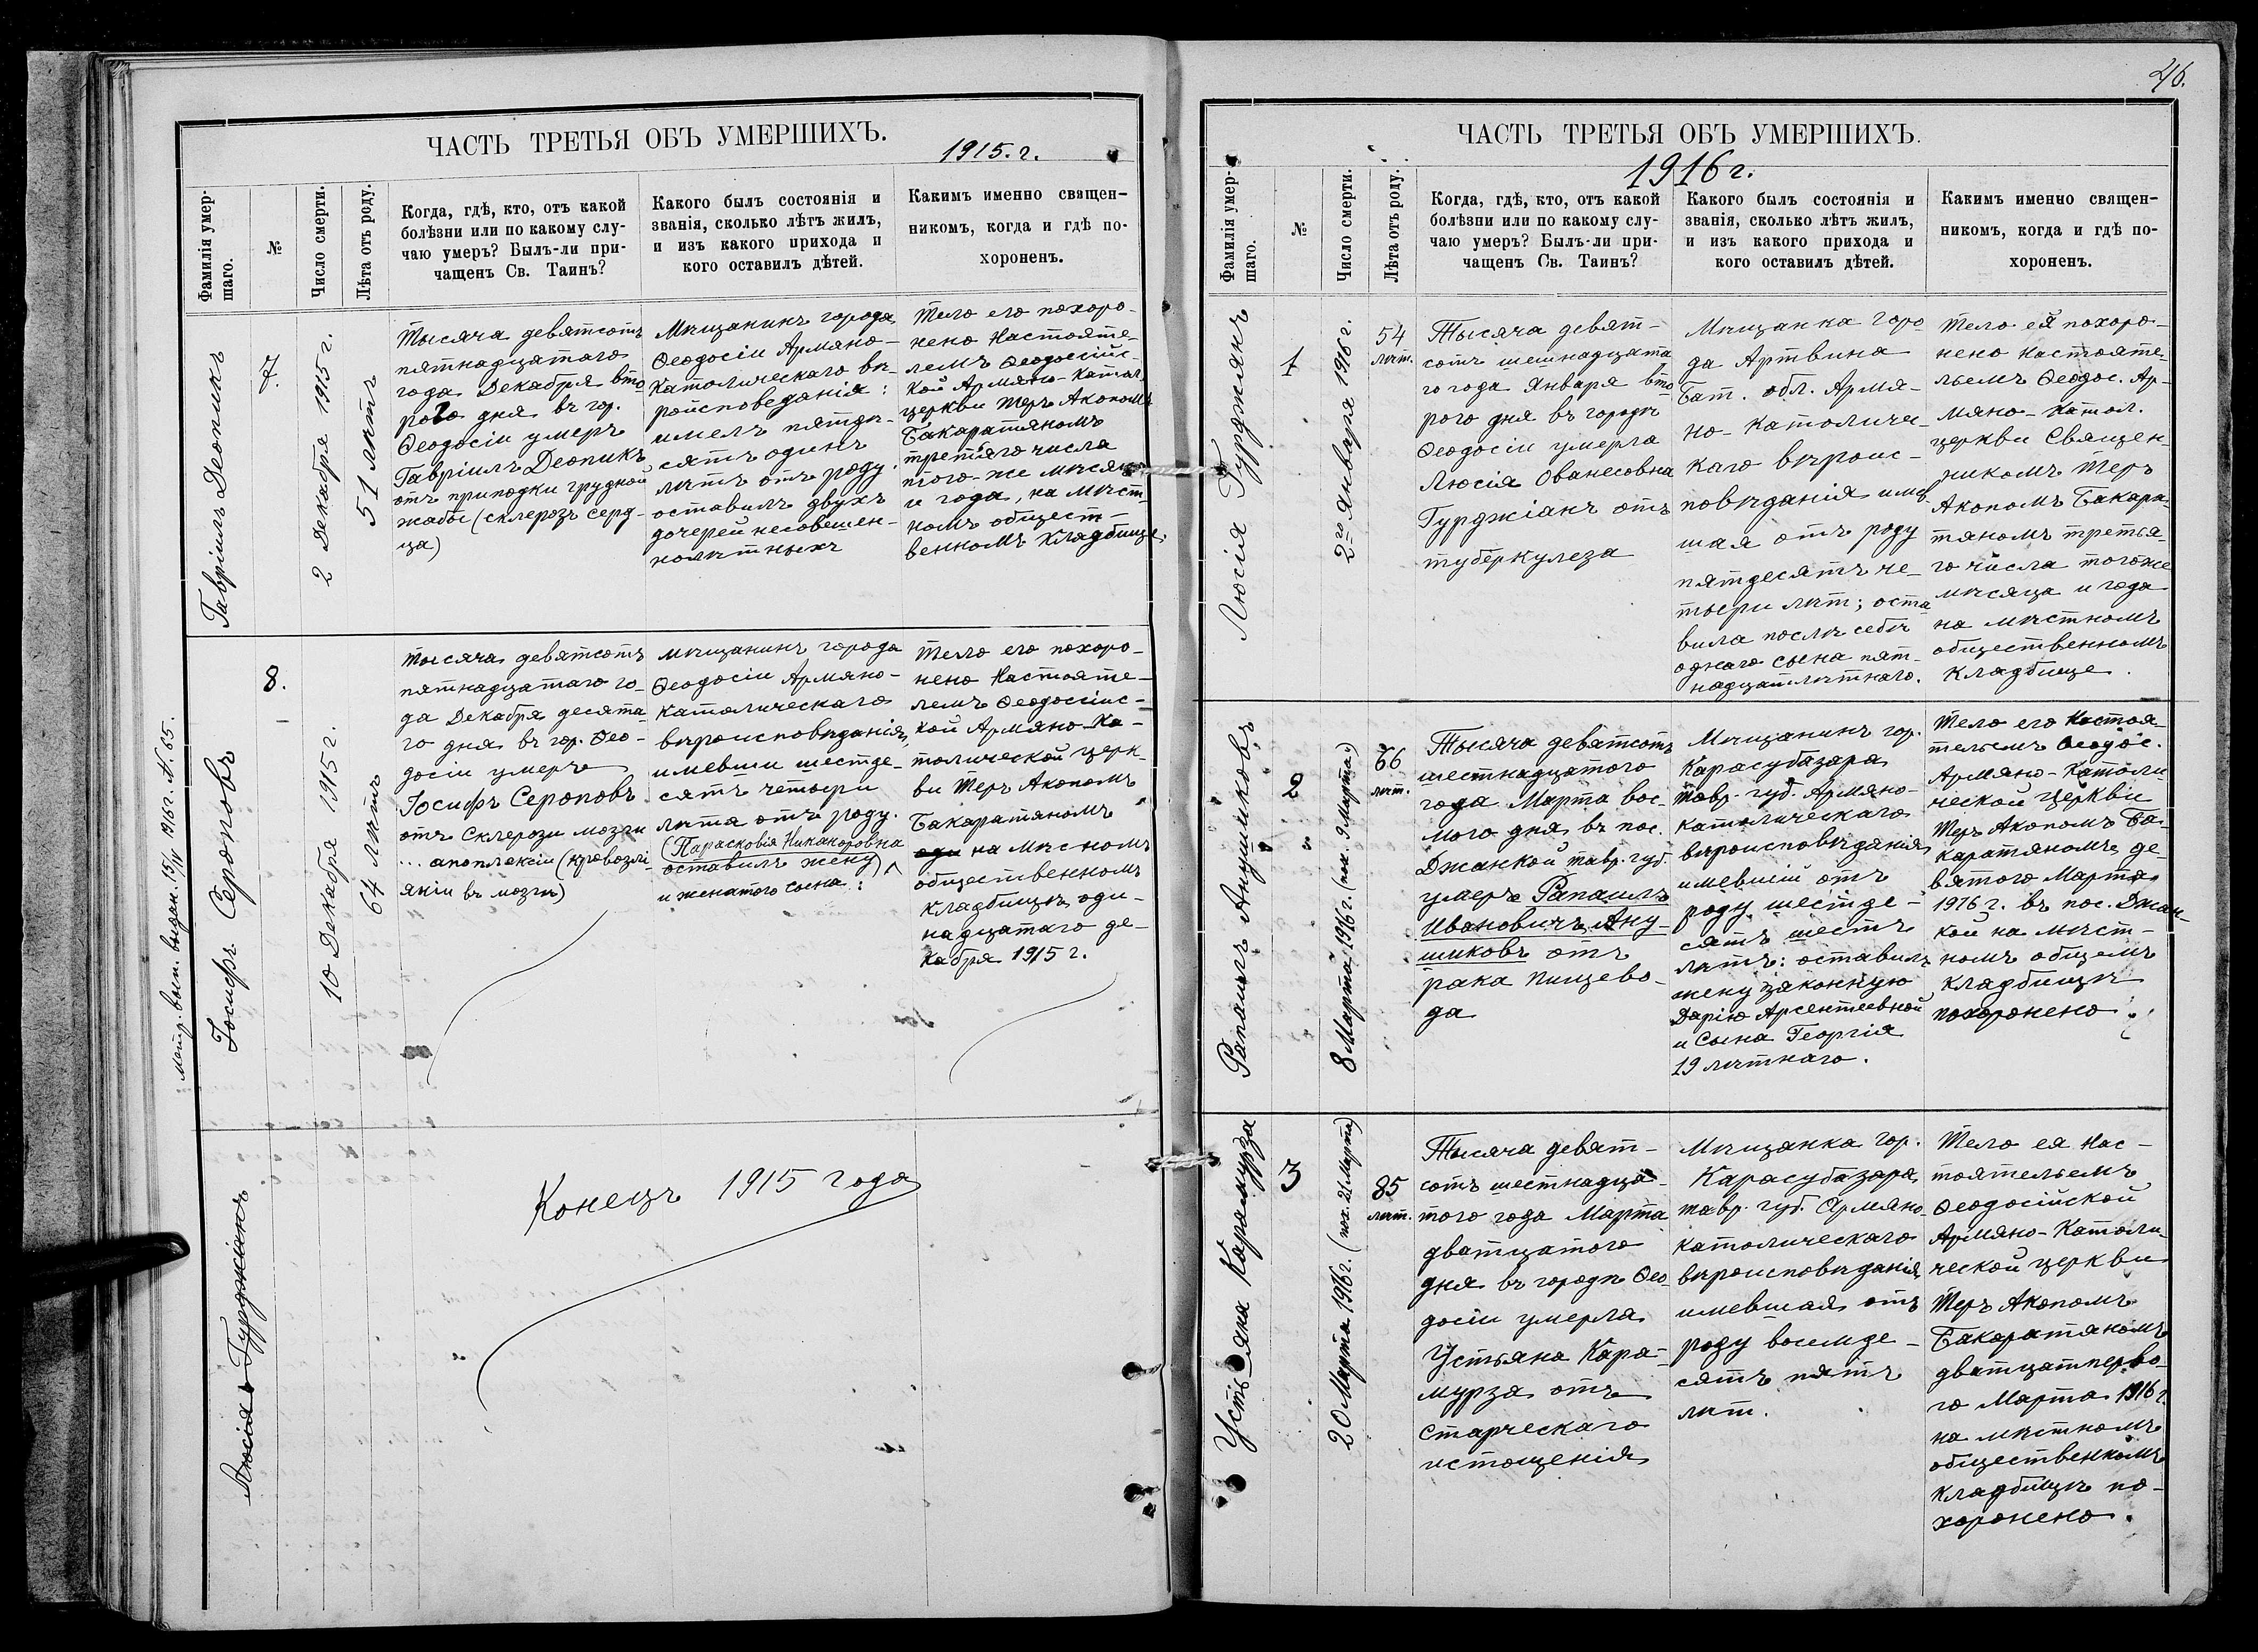 ЧАСТЬ ТРЕТЬЯ ОБЪ УМЕРШИХЪ.
1915.г.
Фамилія умер-
шаго.
№
Число смерти.
Лѣта отъ роду.
Когда, гдѣ, кто, отъ какой
болѣзни или по какому слу-
чаю умеръ? Былъ-ли при-
чащенъ Св. Таинъ?
Какого былъ состоянія и
званія, сколько лѣтъ жилъ,
и изъ какого прихода и
кого оставилъ дѣтей.
Какимъ именно священ-
никомъ, когда и гдѣ по-
хороненъ.
Гавріилъ Деопикъ
7.
2 Декабря 1915 г.
51 лѣтъ
Тысяча девятсотъ
пятнадцатаго
года Декабря вто
рого дня въ гор.
Ѳеодосіи умеръ
Гавріилъ Деопикъ
отъ припадки грудной
жабы (склерозъ серд-
ца)
Мѣщанинъ города
Ѳеодосіи Армяно-
Католическаго вѣ-
роисповеданія:
имелъ пятде-
сятъ одинъ
лѣтъ отъ роду.
оставилъ двухъ
дочерей несовешен-
нолѣтныхъ
Тело его похоро-
нено Настояте-
лемъ Ѳеодосійс-
кой Армяно-Катол.
церкви Теръ Акопомъ
Бакаратяномъ
третьяго числа
того-же мѣсяца
и года, на мѣст-
номъ общест-
венномъ кладбище.
Іосифъ Сероповъ
8.
10 Декабря 1915 г.
64 лѣтъ
Метр. вып. выдан. 15/IV 1916 г. № 65.
Тысяча девятсотъ
пятнадцатаго го-
да Декабря десята-
го дня въ гор. Ѳео-
досіи умеръ
Іосифъ Сероповъ
отъ Склерози мозги
... апоплексіи (кровозлі
яніи въ мозги)
Мѣщанинъ города
Ѳеодосіи Армяно-
католическаго
вѣроисповѣданія,
имевши шестде-
сятъ четыри
лѣта отъ роду.
(Парасковія Никаноровна
оставилъ жену)
и женатого сына:
Тело его похоро-
нено Настояте-
лемъ Ѳеодосійс-
кой Армяно-Ка-
толической церк-
ви Теръ Акопомъ
Бакаратяномъ
оди на мѣсномъ
общественномъ
кладбищѣ оди-
надцатаго де-
кабря 1915 г.
Люсія Гурджіянъ
Конецъ 1915 года
46.
ЧАСТЬ ТРЕТЬЯ ОБЪ УМЕРШИХЪ.
1916 г.
Фамилія умер-
шаго.
№
Число смерти.
Лѣта отъ роду.
Когда, гдѣ, кто, отъ какой
болѣзни или по какому слу-
чаю умеръ? Былъ-ли при-
чащенъ Св. Таинъ?
Какого былъ состоянія и
званія, сколько лѣтъ жилъ,
и изъ какого прихода и
кого оставилъ дѣтей.
Какимъ именно священ-
никомъ, когда и гдѣ по-
хороненъ.
Люсія Гурджіянъ
1
2го Января 1916 г.
54
лѣт.
Тысяча девят-
сотъ шешнадцата
го года Января вто
рого дня въ городѣ
Ѳеодосіи умерла
Люсія Ованесовна
Гурджіанъ отъ
туберкулеза
Мѣщанка горо
да Артвина
Бат. обл. Армя-
но-католичес-
каго вѣроис-
повѣданія имев
шая отъ роду
пятдесятъ че-
тыри лѣт; оста
вила послѣ себѣ
однаго сына пят-
надцатилѣтнаго.
Тело ея похоро-
нено Настояте-
льемъ Ѳеодос. Ар-
мяно-Катол.
церкви Священ-
никомъ Теръ
Акопомъ Бакара-
тяномъ третья-
го числа тогоже
мѣсяца и года
на мѣстномъ
общественномъ
Кладбище.
Рапаилъ Анушиковъ
2
8 Марта 1916 г. (пох. 9 Марта)
66
лѣт.
Тысяча девятсотъ
шестнадцатого
года Марта вос-
мого дня въ пос.
Джанкой тавр. губ.
умеръ Рапаилъ
Ивановичъ Ану-
шиковъ отъ
рака пищево-
да
Мѣщанинъ гор.
Карасубазара
Тавр. губ. Армяно-
католическаго
вѣроисповѣданія
имевшій отъ
роду шестде-
сятъ шестъ
лѣтъ: оставилъ
жену законную
Дарію Арсентеевной
и Сына Георгія
19 лѣтнаго.
Тело его Настоя-
тельемъ Ѳеодос.
Армяно-Католи
ческой Церкви
Теръ Акопомъ Ба-
каратяномъ де-
вятого Марта
1916 г. въ пос. Джан-
кой на мѣст-
номъ общемъ
кладбищѣ
похоронено.
Устьяна Карамурза
3
20 Марта 1916 г. (пох. 21 Марта)
85
лѣт.
Тысяча девят-
сотъ шестнадца-
того года Марта
дватцатого
дня въ городѣ Ѳео
досіи умерла
Устьяна Кара-
мурза отъ
старческаго
истощенія
Мѣщанка гор.
Карасубазара,
тавр. губ. Армяно-
католическаго
вѣроисповѣданія
имевшая отъ
роду восемде-
сятъ пятъ
лѣт.
Тело ея Нас-
тоятельемъ
Ѳеодосійской
Армяно-Католи-
ческой церкви
Теръ Акопомъ
Бакаратяномъ
дватцатперво-
го Марта 1916 г.
на мѣстномъ
общественномъ
кладбищѣ по-
хоронено.